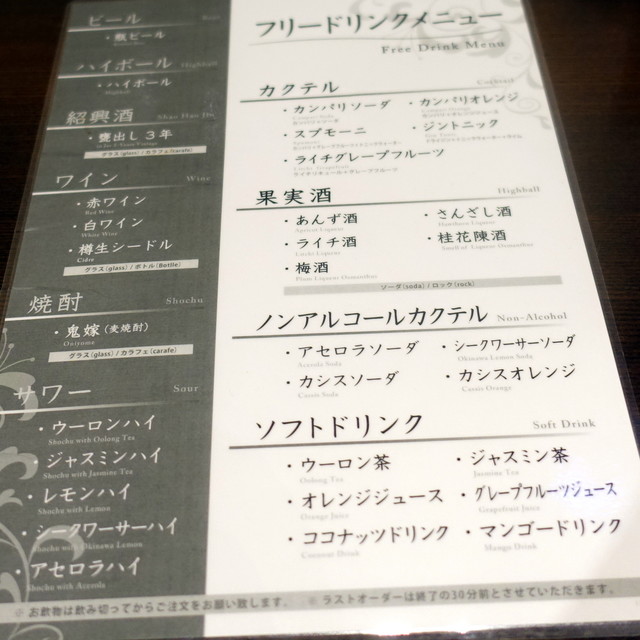 ビール Beer
・瓶ビール
ハイボール Highball
・ハイボール
紹興酒 Shao Hsin Jiu
・甕出し3年
グラス(glass) / カラフェ(carafe)
ワイン Wine
・赤ワイン
Red Wine
・白ワイン
White Wine
・樽生シードル
Cidre
グラス(glass) / ボトル(Bottle)
焼酎 Shochu
・鬼嫁(麦焼酎)
Oniyome
グラス(glass) / カラフェ(carafe)
サワー Sour
・ウーロンハイ
Shochu with Oolong Tea
・ジャスミンハイ
Shochu with Jasmine Tea
・レモンハイ
Shochu with Lemon
・シークワーサーハイ
Shochu with Okinawa Lemon
・アセロラハイ
Shochu with Acerola
フリードリンクメニュー
Free Drink Menu
カクテル Cocktail
・カンパリソーダ ・カンパリオレンジ
・スプモーニ ・ジントニック
・ライチグレープフルーツ
果実酒 Highball
・あんず酒 ・さんざし酒
Apricot Liqueur
・ライチ酒 ・桂花陳酒
Litchi Liqueur
・梅酒
ソーダ(soda) / ロック(rock)
ノンアルコールカクテル Non-Alcohol
・アセロラソーダ ・シークワーサーソーダ
Acerola Soda Okinawa Lemon Soda
・カシスソーダ ・カシスオレンジ
Cassis Soda Cassis Orange
ソフトドリンク Soft Drink
・ウーロン茶 ・ジャスミン茶
Oolong Tea Jasmine Tea
・オレンジジュース ・グレープフルーツジュース
Orange Juice Grapefruit Juice
・ココナッツドリンク ・マンゴードリンク
Coconut Drink Mango Drink
※ お飲物は飲み切ってからご注文をお願い致します。 ※ ラストオーダーは終了の30分前とさせていただきます。